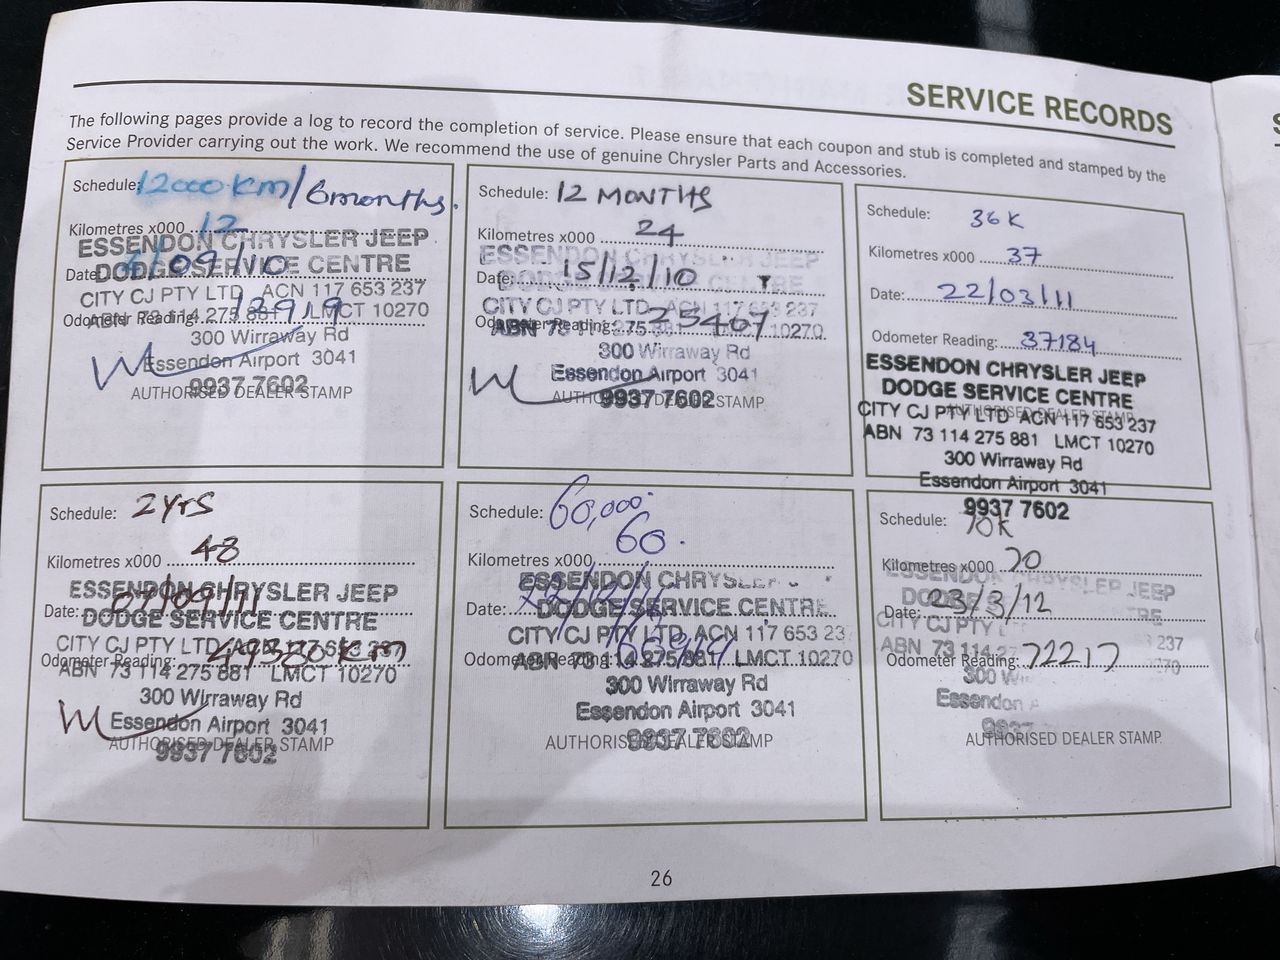 SERVICE RECORDS
The following pages provide a log to record the completion of service. Please ensure that each coupon and stub is completed and stamped by the
Service Provider carrying out the work. We recommend the use of genuine Chrysler Parts and Accessories.
Schedule: 12000 Km/6months.
Kilometres x000 12
ESSENDON CHRYSLER JEEP
Date: /09/10
DODGE SERVICE CENTRE
CITY CJ PTY LTD ACN 117 653 237
Odometer Reading: 13919
ABN 73 114 275 881 LMCT 10270
300 Wirraway Rd
Essendon Airport 3041
9937 7602
AUTHORISED DEALER STAMP
Schedule: 12 MONTHS
Kilometres x000 24
ESSENDON CHRYSLER JEEP
Date: 15/12/10
DODGE SERVICE CENTRE
CITY CJ PTY LTD ACN 117 653 237
Odometer Reading: 25407
ABN 73 114 275 881 10270
300 Wirraway Rd
Essendon Airport 3041
9937 7602
AUTHORISED DEALER STAMP
Schedule: 36K
Kilometres x000 37
Date: 22/03/11
Odometer Reading: 37184
ESSENDON CHRYSLER JEEP
DODGE SERVICE CENTRE
AUTHORISED DEALER STAMP
CITY CJ PTY LTD ACN 117 653 237
ABN 73 114 275 881 LMCT 10270
300 Wirraway Rd
Essendon Airport 3041
9937 7602
Schedule: 2yrs
Kilometres x000 48
ESSENDON CHRYSLER JEEP
Date: 07/09/11
DODGE SERVICE CENTRE
CITY CJ PTY LTD ACN 117 653
Odometer Reading: 49320 Km
ABN 73 114 275 881 LMCT 10270
300 Wirraway Rd
Essendon Airport 3041
AUTHORISED DEALER STAMP
9937 7602
Schedule: 60,000
Kilometres x000 60.
ESSENDON CHRYSLER
Date: /12/11
DODGE SERVICE CENTRE
CITY CJ PTY LTD ACN 117 653 23
Odometer Reading:
ABN 73 114 275 881 LMCT 10270
300 Wirraway Rd
Essendon Airport 3041
AUTHORISED DEALER STAMP
9937 7602
Schedule: 70K
Kilometres x000 70
ESSENDON CHRYSLER JEEP
Date: 23/3/12
DODGE
CITY CJ PTY 237
ABN 73 114
Odometer Reading: 72217
300
Essendon
9937
AUTHORISED DEALER STAMP
26